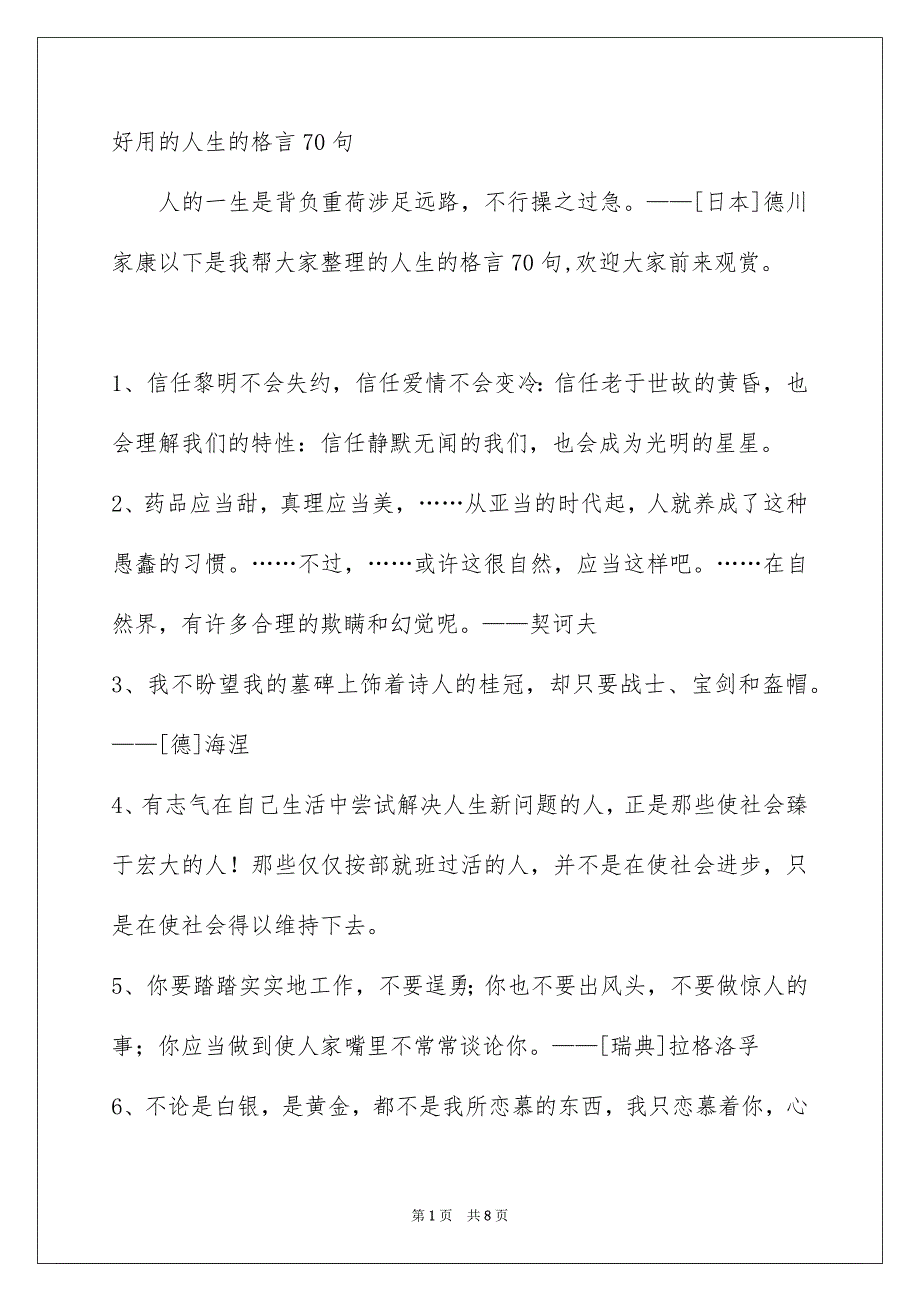 好用的人生的格言 70 句
人的一生是背负重荷涉足远路，不行操之过急。——[日本]德川
家康以下是我帮大家整理的人生的格言 70 句,欢迎大家前来观赏。
1、信任黎明不会失约，信任爱情不会变冷：信任老于世故的黄昏，也
会理解我们的特性：信任静默无闻的我们，也会成为光明的星星。
2、药品应当甜，真理应当美，……从亚当的时代起，人就养成了这种
愚蠢的习惯。……不过，……或许这很自然，应当这样吧。……在自
然界，有许多合理的欺瞒和幻觉呢。——契诃夫
3、我不盼望我的墓碑上饰着诗人的桂冠，却只要战士、宝剑和盔帽。
——[德]海涅
4、有志气在自己生活中尝试解决人生新问题的人，正是那些使社会臻
于宏大的人！那些仅仅按部就班过活的人，并不是在使社会进步，只
是在使社会得以维持下去。
5、你要踏踏实实地工作，不要逞勇；你也不要出风头，不要做惊人的
事；你应当做到使人家嘴里不常常谈论你。——[瑞典]拉格洛孚
6、不论是白银，是黄金，都不是我所恋慕的东西，我只恋慕着你，心
第 1 页 共 8 页